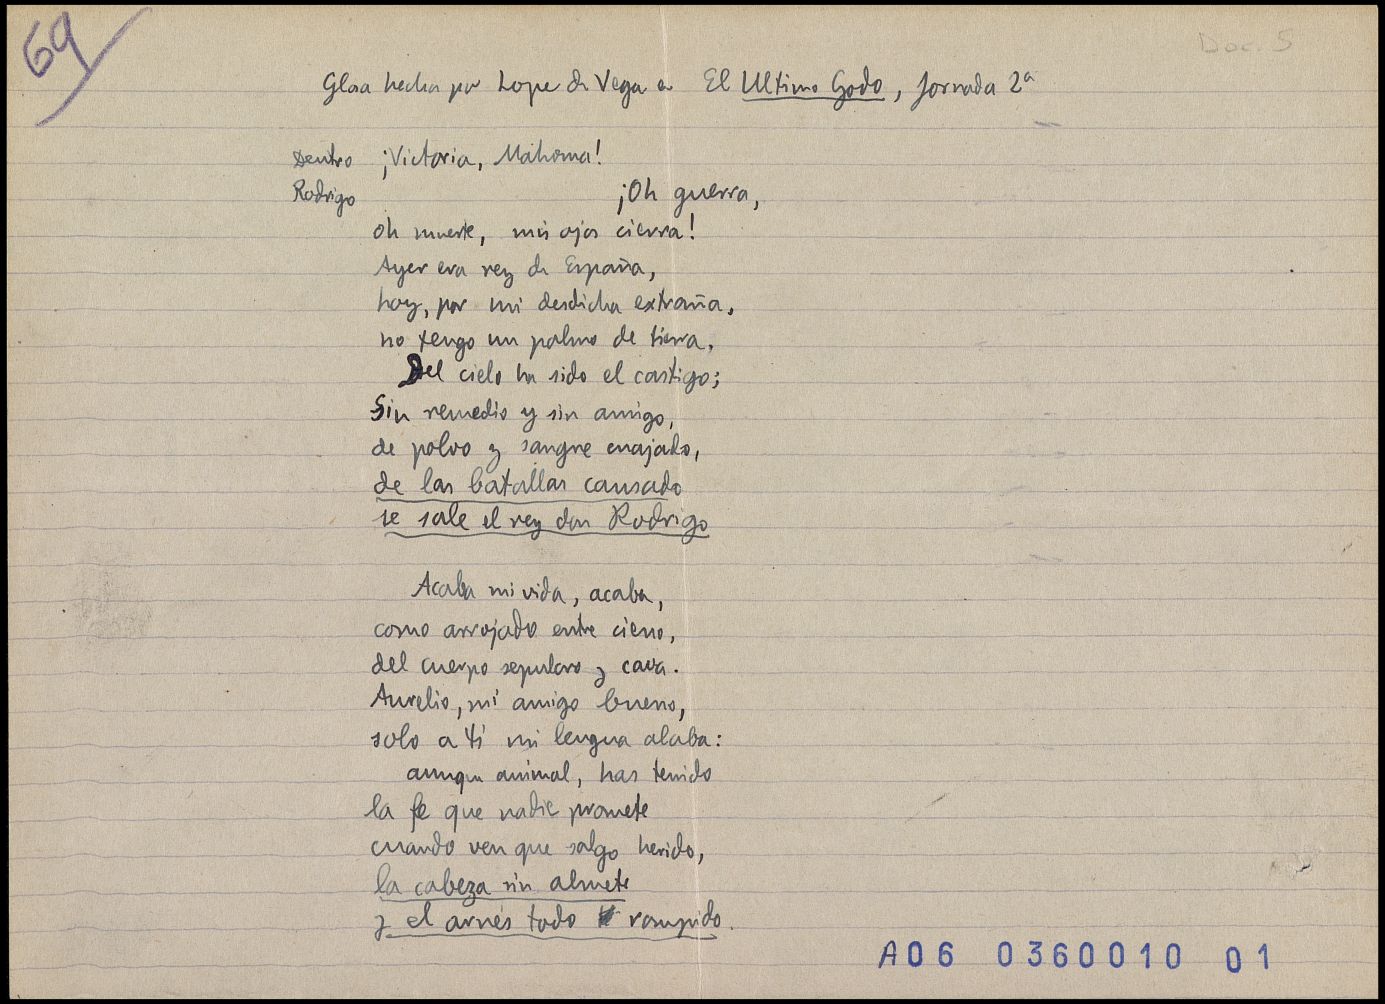 69
Doc. 5
Glosa hecha por Lope de Vega en El Ultimo Godo, Jornada 2ª
Dentro ¡Victoria, Mahoma!
Rodrigo ¡Oh guerra,
oh muerte, mis ojos cierra!
Ayer era rey de España,
hoy, por mi desdicha extraña,
no tengo un palmo de tierra.
Del cielo ha sido el castigo;
Sin remedio y sin amigo,
de polvo y sangre cuajado,
de las batallas cansado
se sale el rey don Rodrigo
Acaba mi vida, acaba,
como arrojado entre cieno,
del cuerpo sepulcro y cava.
Aurelio, mi amigo bueno,
solo a ti mi lengua alaba:
aunque animal, has tenido
la fe que nadie promete
cuando ven que salgo herido,
la cabeza sin almete
y el arnés todo rompido.
A06 0360010 01